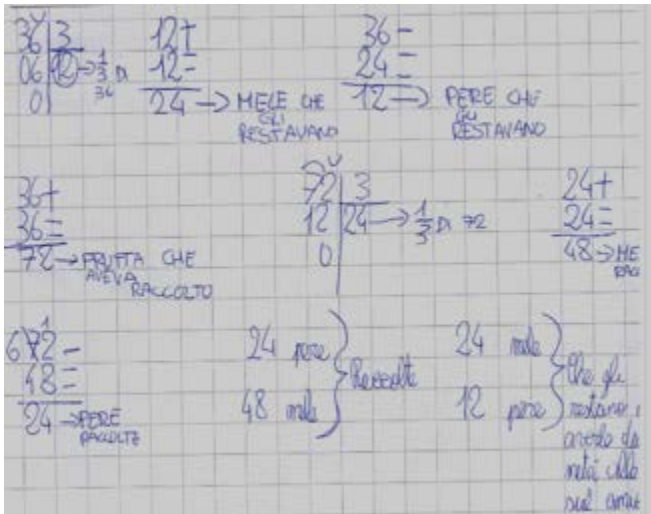 36 | 3
06 | 12 → 1/3 DI 36
0
12 +
12 =
24 → MELE CHE GLI RESTAVANO
36 -
24 =
12 → PERE CHE GLI RESTAVANO
36 +
36 =
72 → FRUTTA CHE AVEVA RACCOLTO
72 | 3
12 | 24 → 1/3 DI 72
0
24 +
24 =
48 → ME
RAC
6 1
72 -
48 =
24 → PERE RACCOLTE
24 pere
48 mele
Raccolte
24 mele
12 pere
Che gli
restano
metà